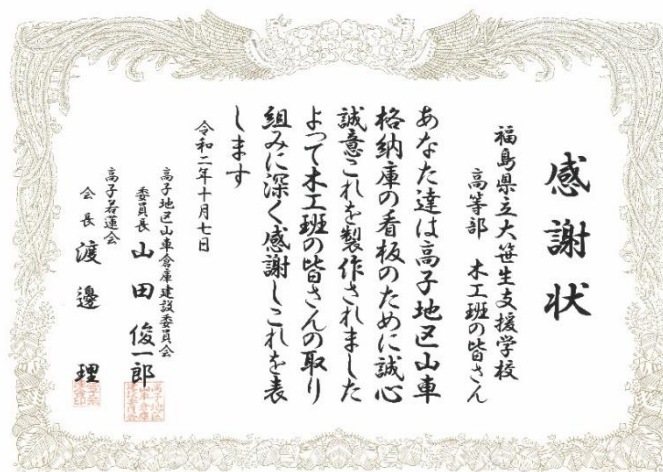 感謝状
福島県立大笹生支援学校
高等部 木工班の皆さん
あなた達は高子地区山車
格納庫の看板のために誠心
誠意これを製作されました
よって木工班の皆さんの取り
組みに深く感謝しこれを表
します
令和二年十月七日
高子地区山車倉庫建設委員会
委員長 山田俊一郎
高子若連会
会長 渡邊理